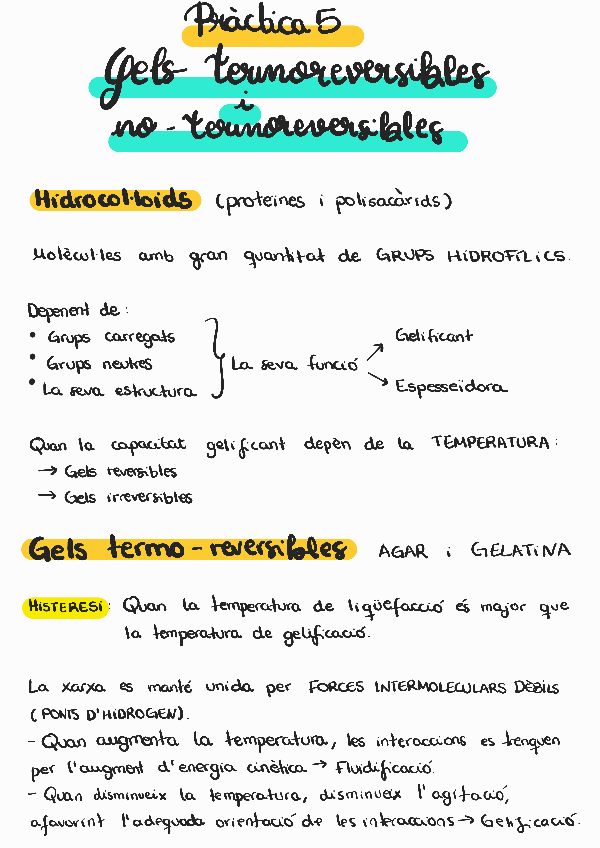 Pràctica 5
Gels termoreversibles
i
no-termoreversibles
Hidrocol·loids (proteïnes i polisacàrids)
Molècul·les amb gran quantitat de GRUPS HIDROFÍLICS.
Depenent de:
• Grups carregats
• Grups neutres
• La seva estructura
La seva funció
Gelificant
Espesseïdora
Quan la capacitat gelificant depèn de la TEMPERATURA:
→ Gels reversibles
→ Gels irreversibles
Gels termo-reversibles AGAR i GELATINA
HISTERESI: Quan la temperatura de liqüefacció és major que
la temperatura de gelificació.
La xarxa es manté unida per FORCES INTERMOLECULARS DÈBILS
(PONTS D'HIDROGEN).
- Quan augmenta la temperatura, les interaccions es trenquen
per l'augment d'energia cinètica → Fluidificació.
- Quan disminueix la temperatura, disminueix l'agitació,
afavorint l'adequada orientació de les interaccions → Gelificació.